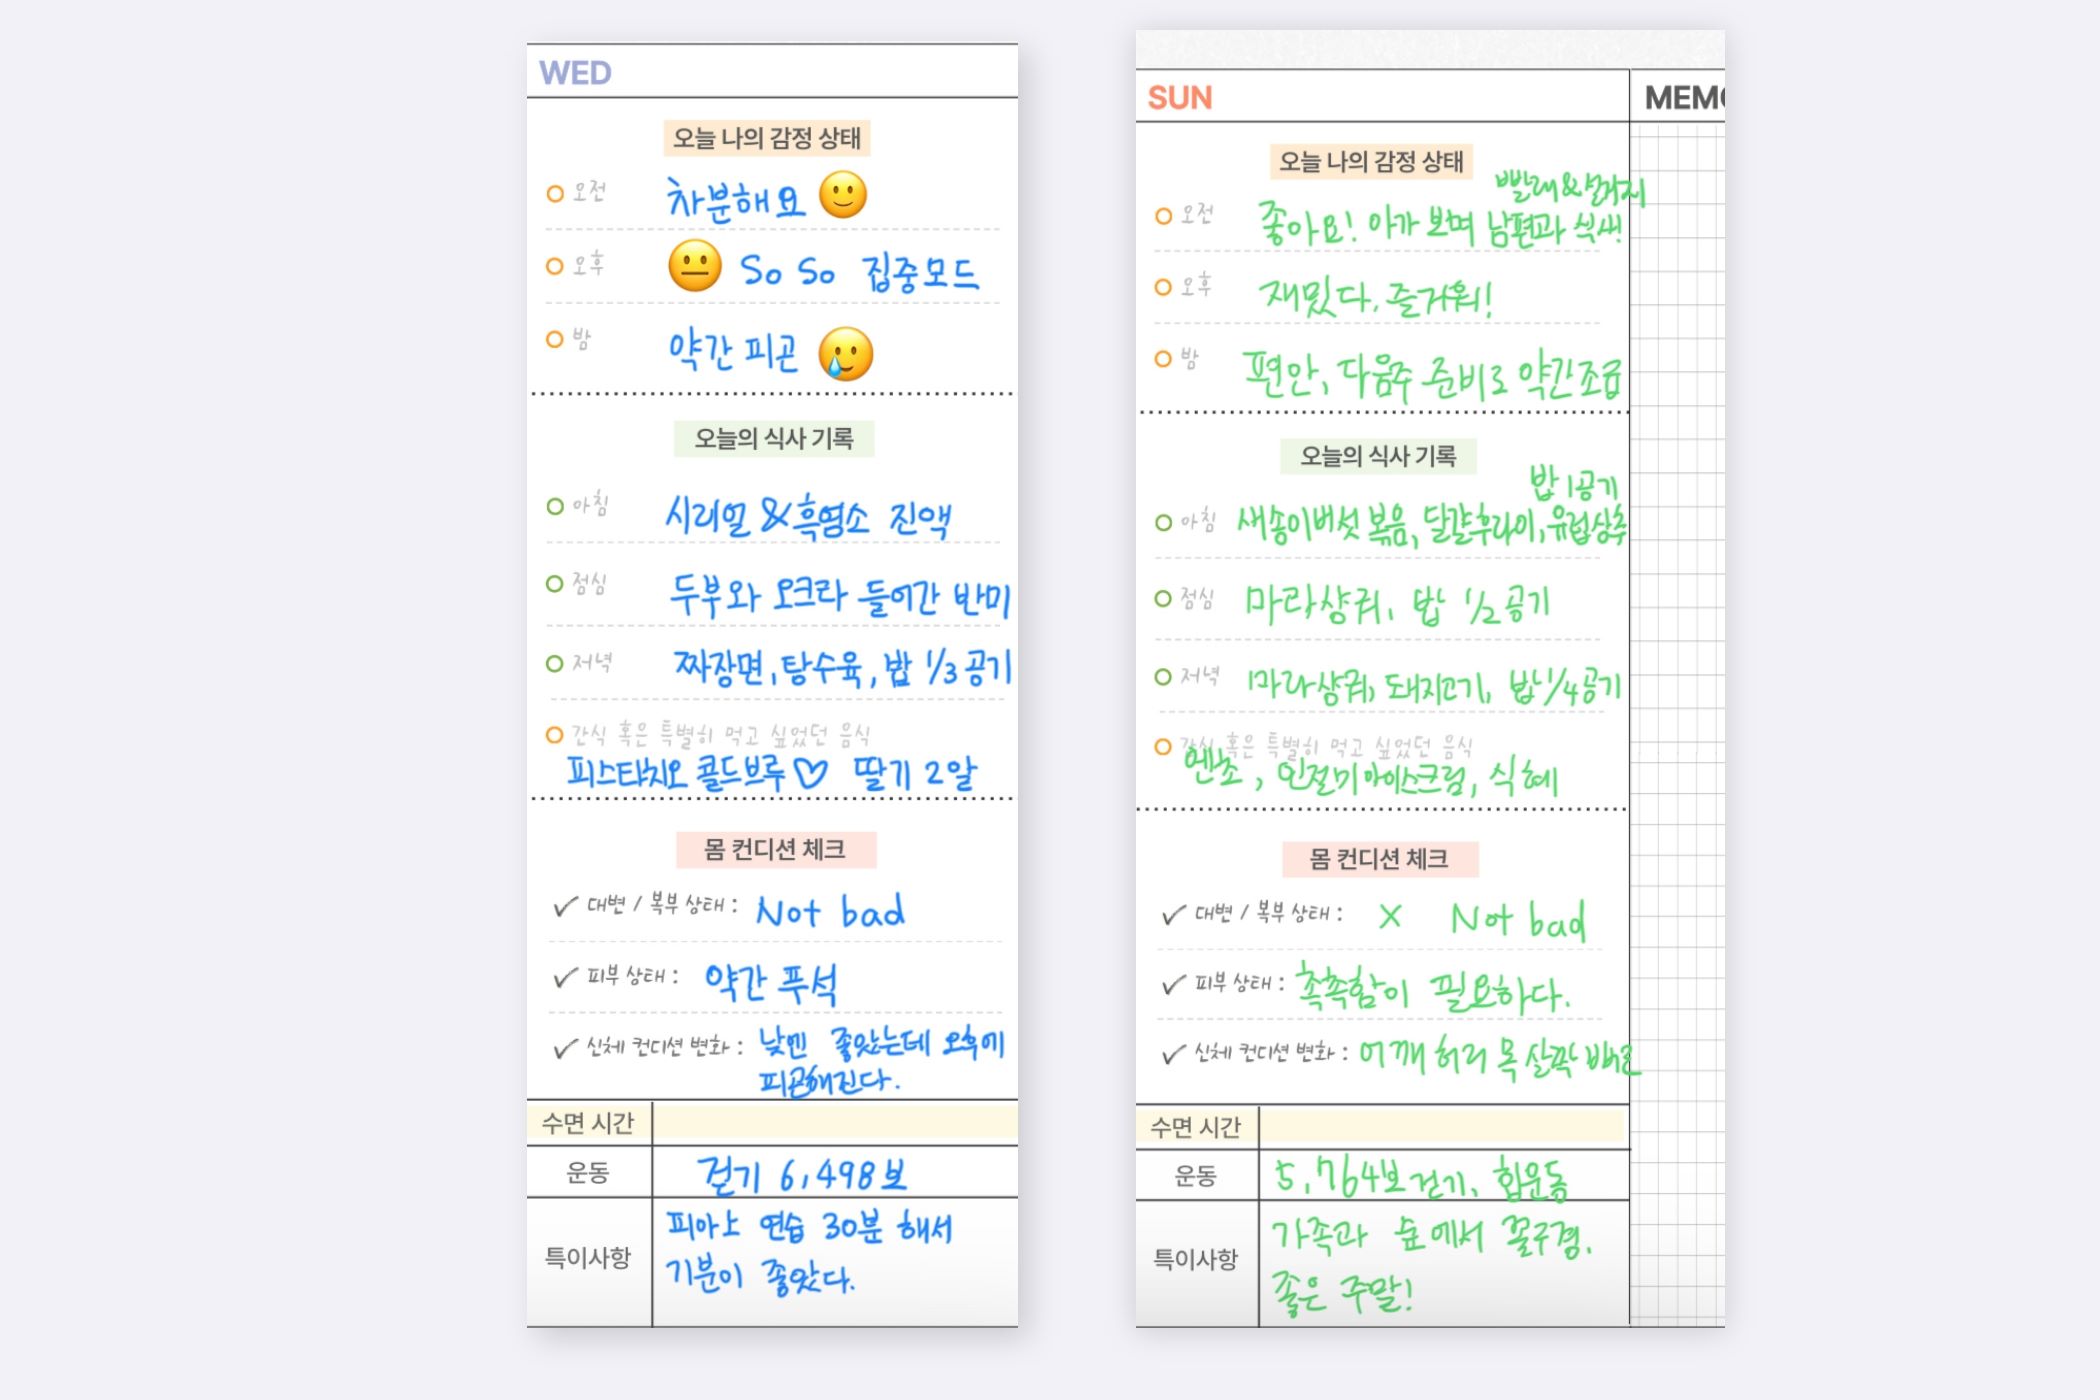 WED
오늘 나의 감정 상태
오전 차분해요
오후 So So 집중모드
밤 약간 피곤
오늘의 식사 기록
아침 시리얼 & 흑염소 진액
점심 두부와 오크라 들어간 반미
저녁 짜장면, 탕수육, 밥 1/3 공기
간식 혹은 특별히 먹고 싶었던 음식
피스타치오 콜드브루♡ 딸기 2알
몸 컨디션 체크
대변 / 복부 상태 : Not bad
피부 상태 : 약간 푸석
신체 컨디션 변화 : 낮엔 좋았는데 오후에
피곤해진다.
수면 시간
운동 걷기 6,498보
특이사항
피아노 연습 30분 해서
기분이 좋았다.
SUN
MEMO
오늘 나의 감정 상태
빨래&설거지
오전 좋아요! 아가 보며 남편과 식사!
오후 재밌다. 즐거워!
밤 편안, 다음주 준비로 약간조급
오늘의 식사 기록
밥 1공기
아침 새송이버섯 볶음, 달걀후라이, 유럽상추
점심 마라샹궈, 밥 1/2 공기
저녁 마라샹궈, 돼지고기, 밥 1/4공기
간식 혹은 특별히 먹고 싶었던 음식
엔초, 인절미아이스크림, 식혜
몸 컨디션 체크
대변 / 복부 상태 : X Not bad
피부 상태 : 촉촉함이 필요하다.
신체 컨디션 변화 : 어깨 허리 목 살짝
수면 시간
운동 5,764보 걷기, 힙운동
특이사항
가족과 숲에서 꽃구경.
좋은 주말!